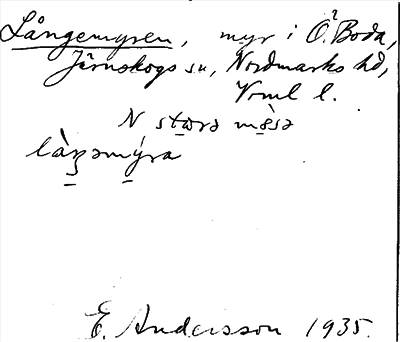 Långemyren, myr i Ö. Boda,
Järnskogs sn, Nordmarks hd,
Vrml l.
N stꞷrə mo̱sə
làŋəmýra
E. Andersson 1935.